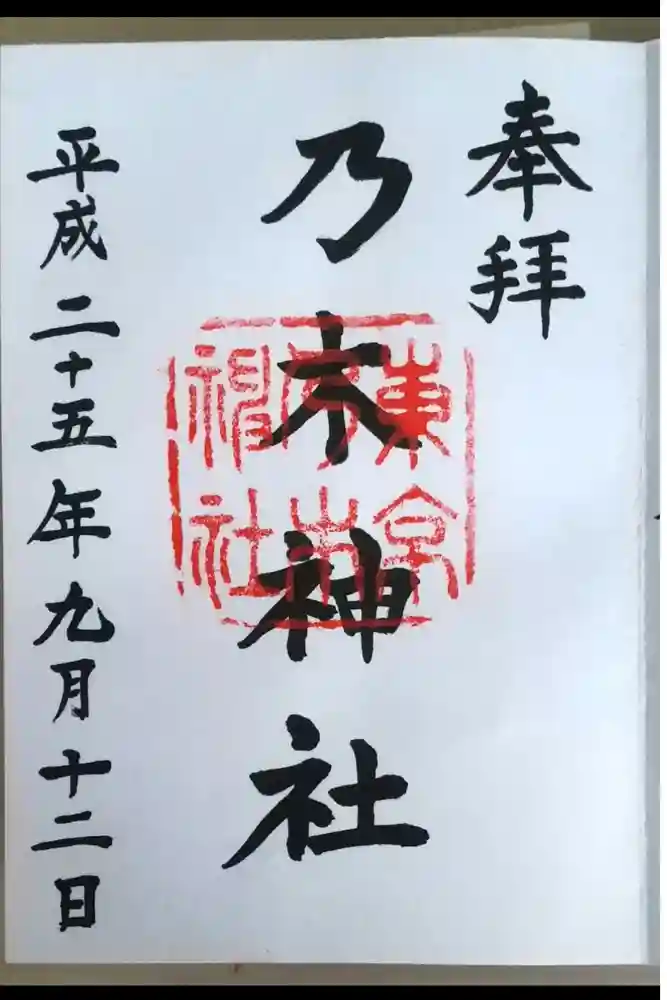 奉拝
乃木神社
東京
乃木
神社
平成二十五年九月十二日